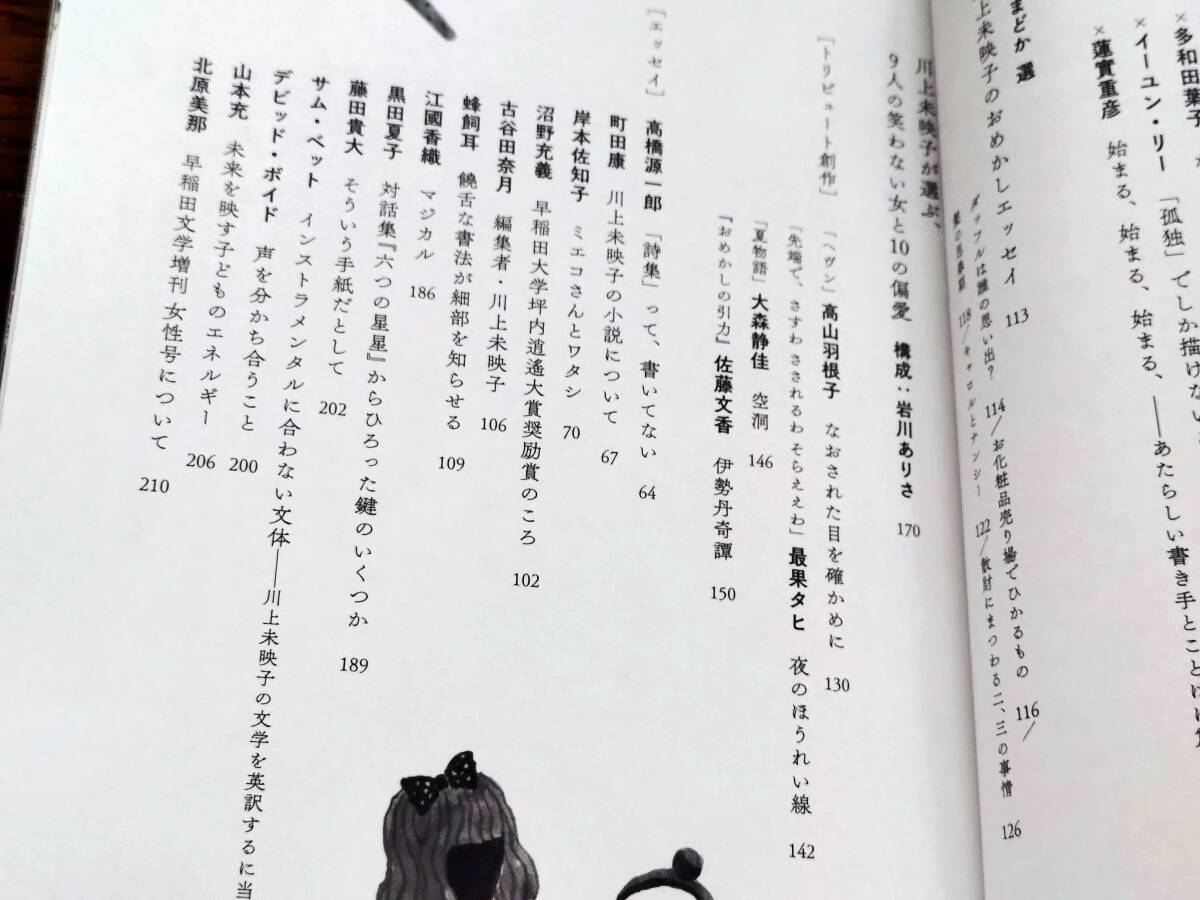 ×多和田葉子
×イーユン・リー 「孤独」でしか描けない
×蓮實重彦 始まる、始まる、始まる、――あたらしい書き手とことば
まどか 選
上未映子のおめかしエッセイ 113
ダッフルは誰の思い出? 114/お化粧品売り場でひかるもの 116/
118/キャロルとナンシー 122/散財にまつわる二、三の事情 126
川上未映子が選ぶ、
9人の笑わない女と10の偏愛 構成:岩川ありさ 170
[トリビュート創作]
「ヘヴン」高山羽根子 なおされた目を確かめに 130
「先端で、さすわ さされるわ そらええわ」最果タヒ 夜のほうれい線 142
「夏物語」大森静佳 空洞 146
『おめかしの引力』佐藤文香 伊勢丹奇譚 150
[エッセイ]
高橋源一郎 「詩集」って、書いてない 64
町田康 川上未映子の小説について 67
岸本佐知子 ミエコさんとワタシ 70
沼野充義 早稲田大学坪内逍遙大賞奨励賞のころ 102
古谷田奈月 編集者・川上未映子 106
蜂飼耳 饒舌な書法が細部を知らせる 109
江國香織 マジカル 186
黒田夏子 対話集『六つの星星』からひろった鍵のいくつか 189
藤田貴大 そういう手紙だとして 202
サム・ベット インストラメンタルに合わない文体――川上未映子の文学を英訳するに当
デビッド・ボイド 声を分かち合うこと 200
山本充 未来を映す子どものエネルギー 206
北原美那 早稲田文学増刊 女性号について 210